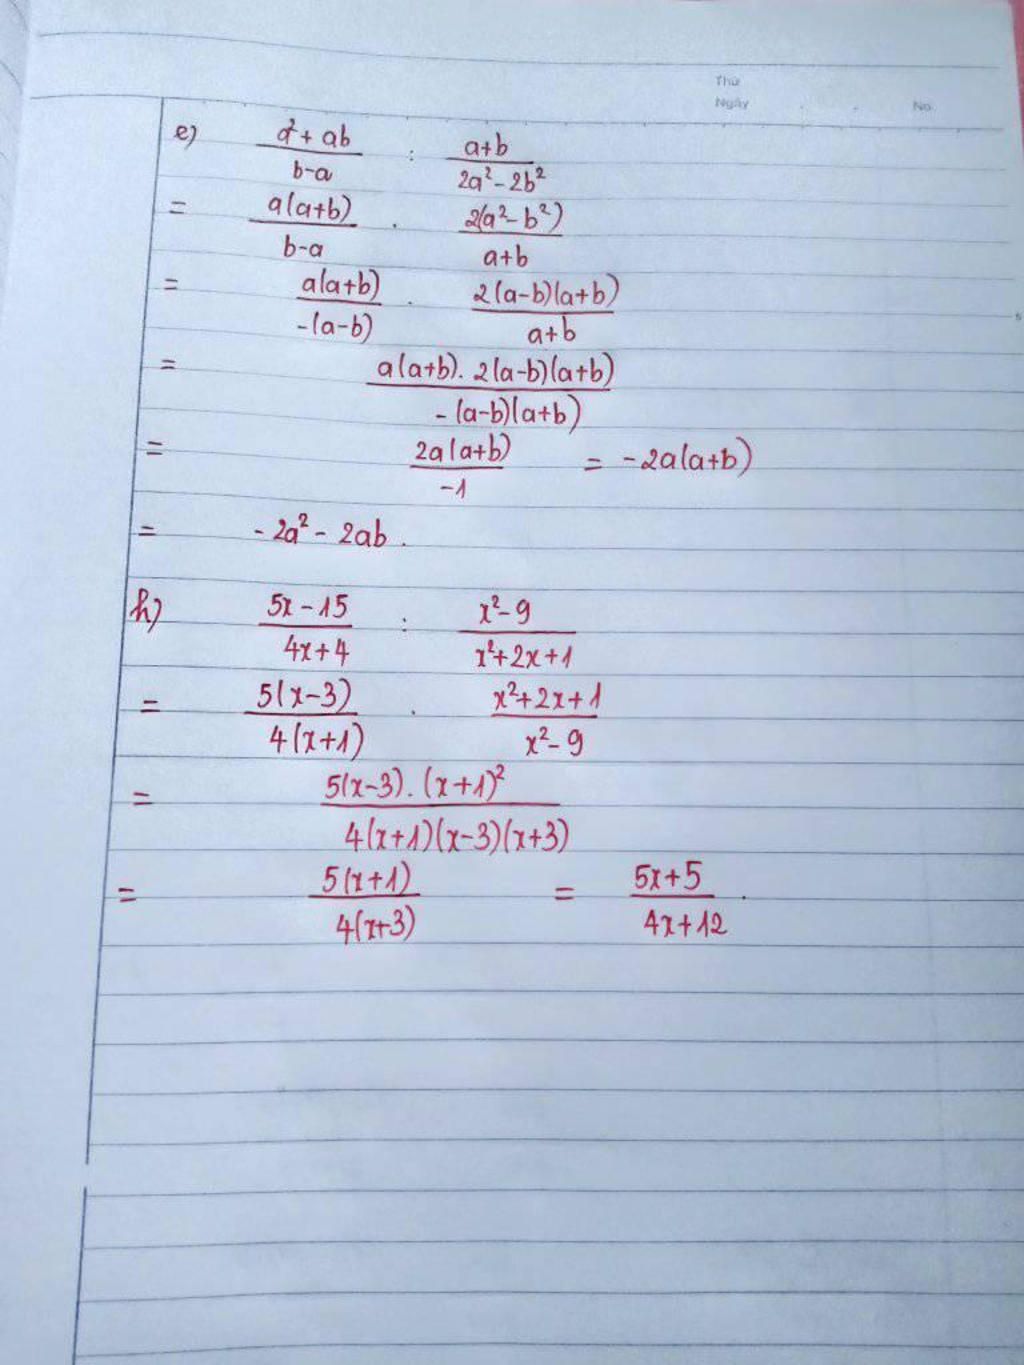 Thứ
Ngày No
e) a²+ab / b-a : a+b / 2a²-2b²
= a(a+b) / b-a . 2(a²-b²) / a+b
= a(a+b) / -(a-b) . 2(a-b)(a+b) / a+b
= a(a+b). 2(a-b)(a+b) / -(a-b)(a+b)
= 2a(a+b) / -1 = -2a(a+b)
= -2a²- 2ab .
h) 5x-15 / 4x+4 : x²-9 / x²+2x+1
= 5(x-3) / 4(x+1) . x²+2x+1 / x²-9
= 5(x-3).(x+1)² / 4(x+1)(x-3)(x+3)
= 5(x+1) / 4(x+3) = 5x+5 / 4x+12 .